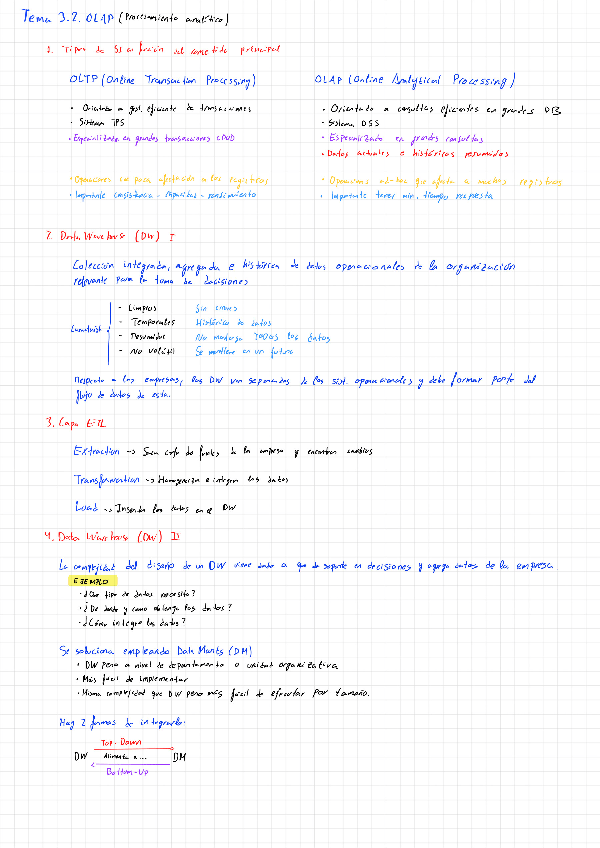 Tema 3.2. OLAP (Procesamiento analítico)
1. Tipos de SI en función del cometido principal
OLTP (Online Transaction Processing)
• Orientado a gest. eficiente de transacciones
• Sistemas TPS
• Especializado en grandes transacciones CRUD
• Operaciones que afectan a los registros
• Importante consistencia - capacidad - rendimiento
OLAP (Online Analytical Processing)
• Orientado a consultas eficientes en grandes DB.
• Sistema DSS
• Especializado en grandes consultas
• Datos actuales e históricos resumidos
• Operaciones que afecta a muchos registros
• Importante tener mín. tiempo respuesta
2. Data Warehouse (DW) I
Colección integrada, agregada e histórica de datos operacionales de la organización
relevante para la toma de decisiones
- Limpios Sin errores
- Temporales Histórico de datos
- Resumidos No maneja TODOS los datos
- No volátil Se mantiene en un futuro
Respecto a las empresas, los DW van separados de los sist. operacionales y debe formar parte del
flujo de datos de esta.
3. Capa ETL
Extraction -> Saca copia de fuentes de la empresa y encontrar cambios
Transformation -> Homogeneiza e integra los datos
Load -> Inserta los datos en el DW
4. Data Warehouse (DW) II
La complejidad del diseño de un DW viene dado a que da soporte en decisiones y agrega datos de la empresa
EJEMPLO
• ¿Que tipo de datos necesito?
• ¿De donde y como obtengo los datos?
• ¿Cómo integro los datos?
Se soluciona empleando Data Marts (DM)
• DW pero a nivel de departamento o unidad organizativa
• Más fácil de implementar
• Misma complejidad que DW pero más fácil de efectuar por tamaño.
Hay 2 formas de integrarlo:
Top-Down
DW Alimenta a... DM
Bottom-Up